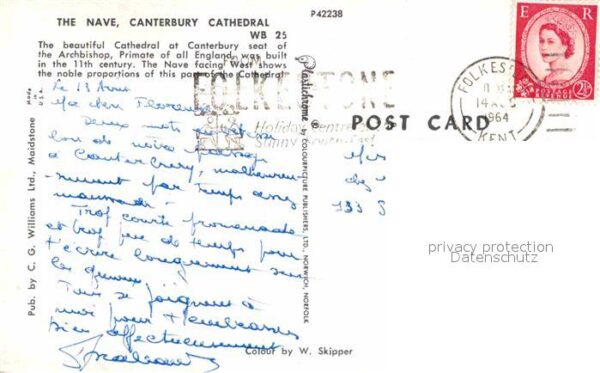 THE NAVE, CANTERBURY CATHEDRAL
WB 25
The beautiful Cathedral at Canterbury seat of
the Archbishop, Primate of all England, was built
in the 11th century. The Nave facing West shows
the noble proportions of this part of the Cathedral
P42238
Made in U.S.A.
Pub. by C. G. Williams Ltd., Maidstone
Le 13 Aout
Ma chère Florence
Deux mots
de notre passage
a Canterbury, malheureu-
sement par temps assez
maussade.
Trop courte promenade
et trop peu de temps pour
t'écrire longuement
se joignent à
moi pour t'embrasser
bien affectueusement
Colour by W. Skipper
Plastichrome ® by COLOURPICTURE PUBLISHERS, LTD., NORWICH, NORFOLK
FOLKESTONE
Holiday Centre
Sunny
POST CARD
FOLKESTONE
14 AUG
1964
KENT
E R
POSTAGE REVENUE
2½D
chez
133
privacy protection
Datenschutz